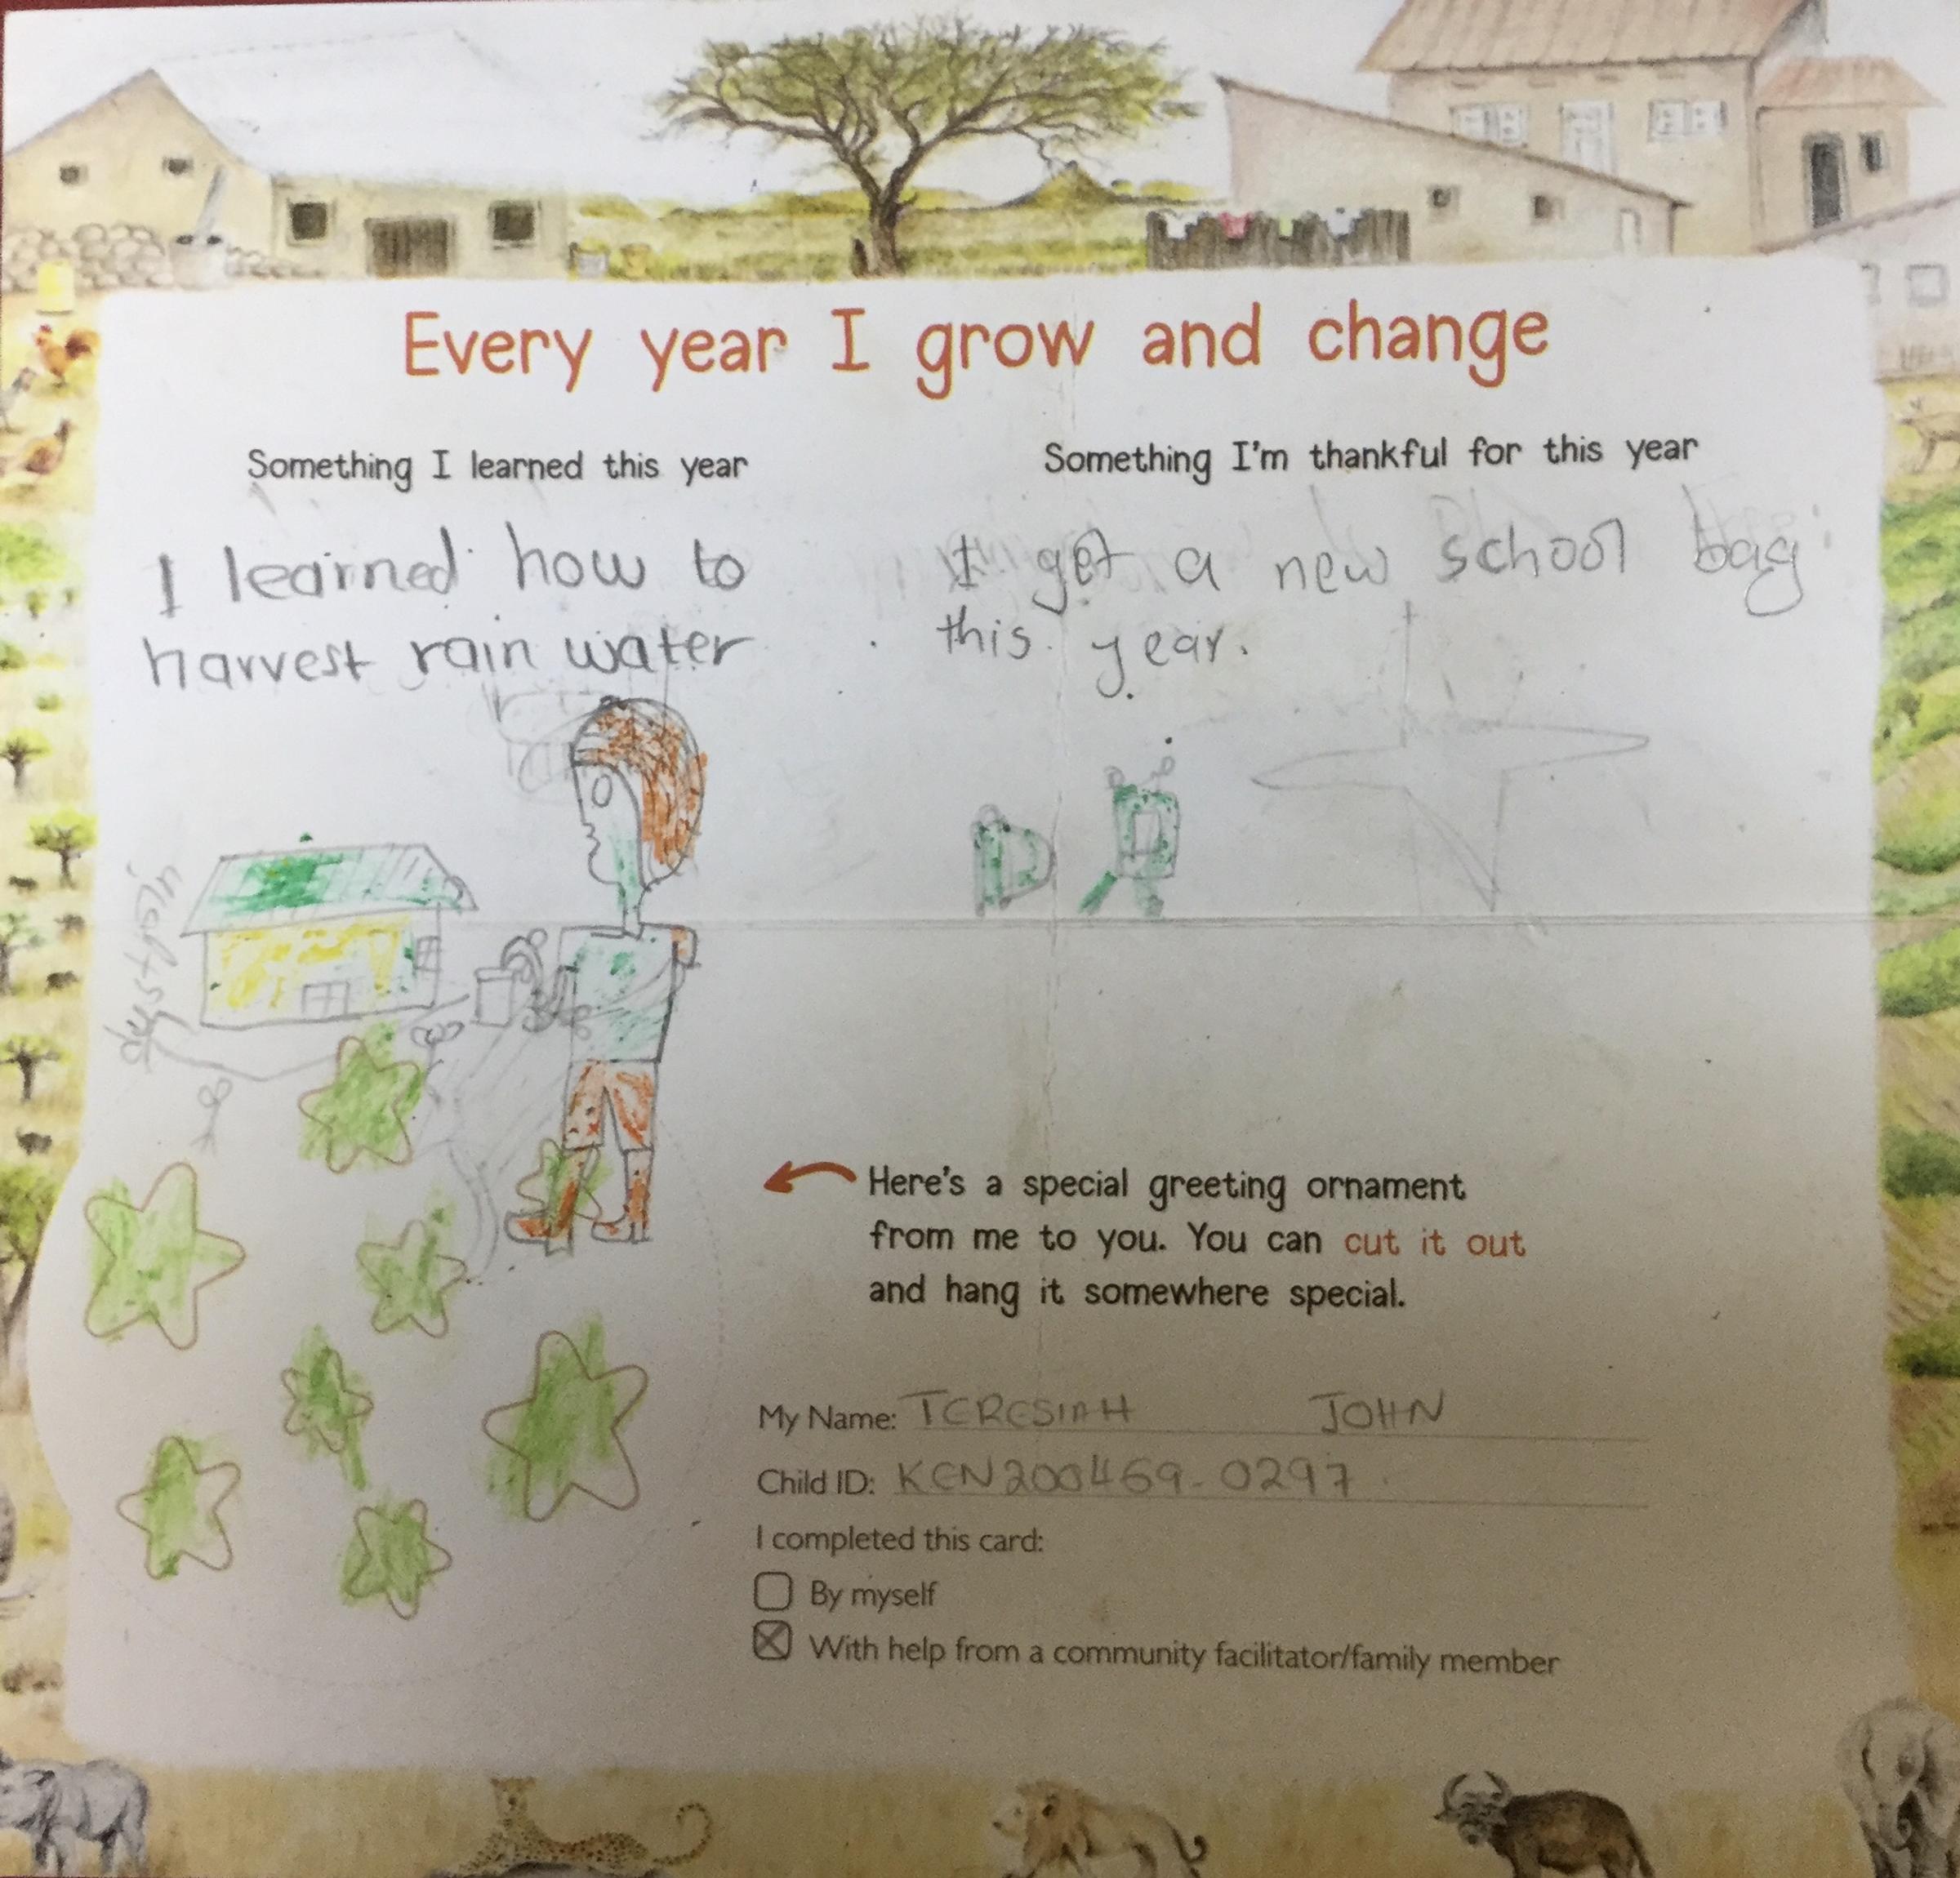 Every year I grow and change
Something I learned this year
I learned how to
harvest rain water
Something I'm thankful for this year
I got a new school bag
this year.
Here's a special greeting ornament
from me to you. You can cut it out
and hang it somewhere special.
My Name: TERESIAH JOHN
Child ID: KEN200469-0297
I completed this card:
By myself
With help from a community facilitator/family member